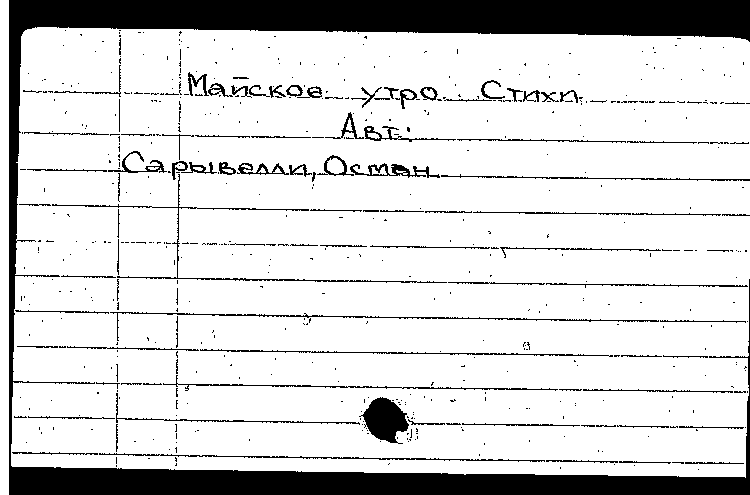 Майское утро. Стихи.
Авт.:
Сарывелли, Осман.